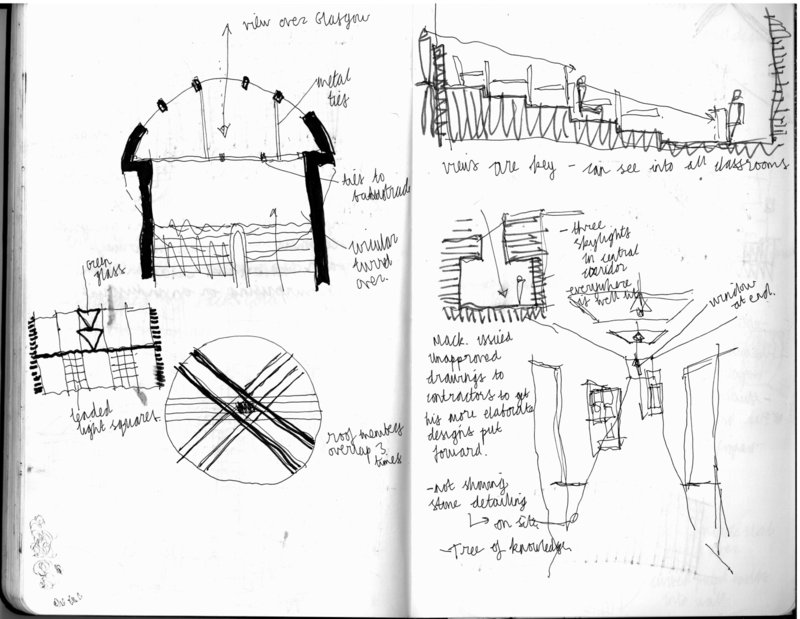 view over Glasgow
metal
ties
ties to
balustrade
circular
turret
over.
green
glass
leaded
light squares.
roof members
overlap 3
times
views are key - can see into all classrooms
- three
skylights
in central
corridor
everywhere
is well lit
window
at end.
Mack. issued
unapproved
drawings to
contractors to get
his more elaborate
designs put
forward.
- not showing
stone detailing
↳ on site
- Tree of knowledge